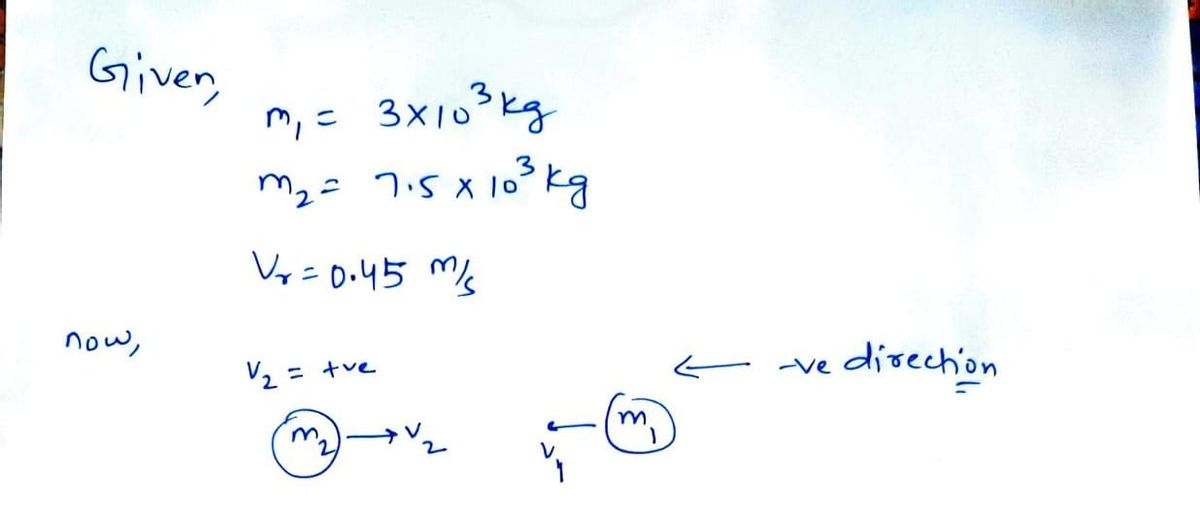 Given,
m₁ = 3×10³ kg
m₂ = 7.5 × 10³ kg
Vᵣ = 0.45 m/s
now,
V₂ = +ve
← -ve direction
m₂ → V₂
← m₁
V₁